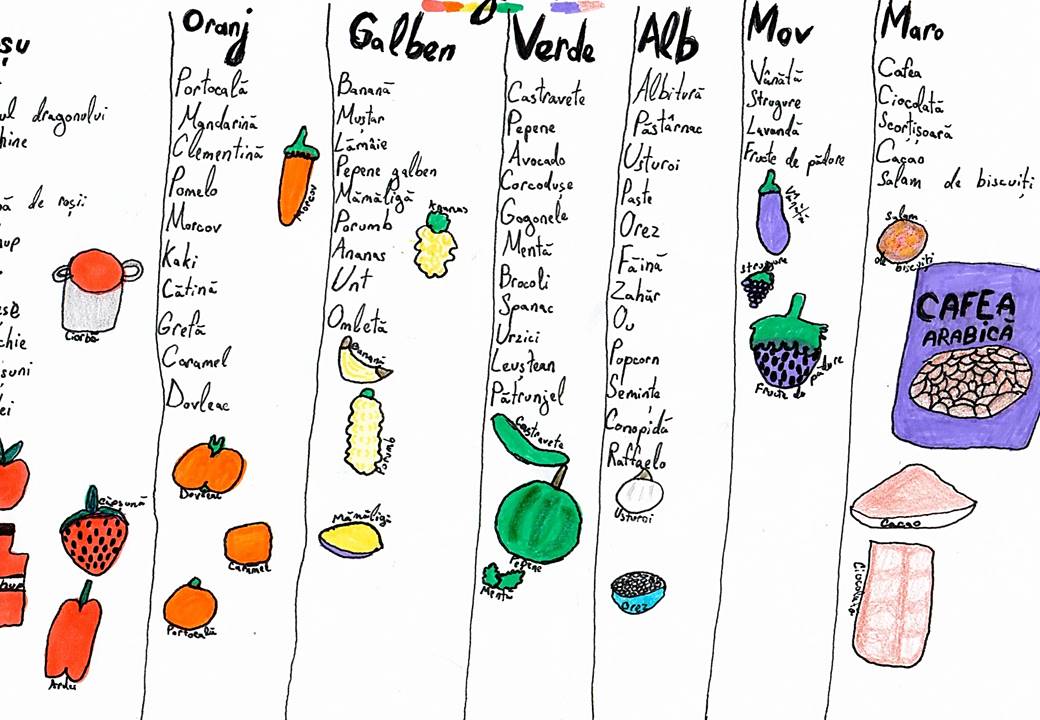 șu
ul dragonului
hine
ă de roșii
hup
ese
chie
șuni
ei
Ciorbă
Căpșună
hup
Ardei
Oranj
Portocală
Mandarină
Clementină
Pomelo
Morcov
Kaki
Cătină
Grefă
Caramel
Dovleac
Morcov
Dovleac
Caramel
Portocală
Galben
Banană
Muștar
Lămâie
Pepene galben
Mămăligă
Porumb
Ananas
Unt
Omletă
Ananas
Banană
Porumb
Mămăligă
Verde
Castravete
Pepene
Avocado
Corcodușe
Gogonele
Mentă
Brocoli
Spanac
Urzici
Leuștean
Pătrunjel
Castravete
Pepene
Mentă
Alb
Albitură
Păstârnac
Usturoi
Paste
Orez
Făină
Zahăr
Ou
Popcorn
Seminte
Conopidă
Raffaelo
Usturoi
Orez
Mov
Vânătă
Strugure
Lavandă
Fructe de pădore
Vânătă
strugure
Fructe de pădore
Maro
Cafea
Ciocolată
Scorțișoară
Cacao
Salam de biscuiți
Salam
de biscuiți
CAFEA
ARABICĂ
Cacao
Ciocolată